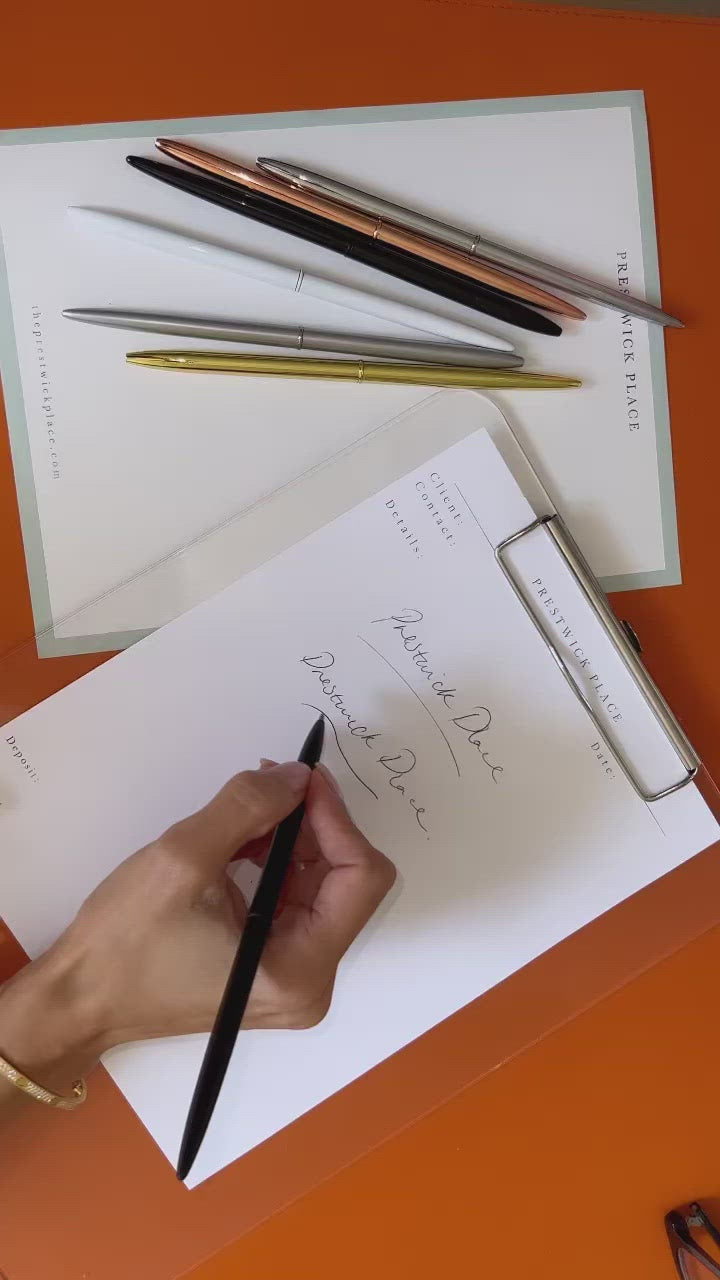 PRESTWICK PLACE
theprestwickplace.com
PRESTWICK PLACE
Client:
Contact:
Details:
Date:
Prestwick Place
Prestwick Place.
Deposit: